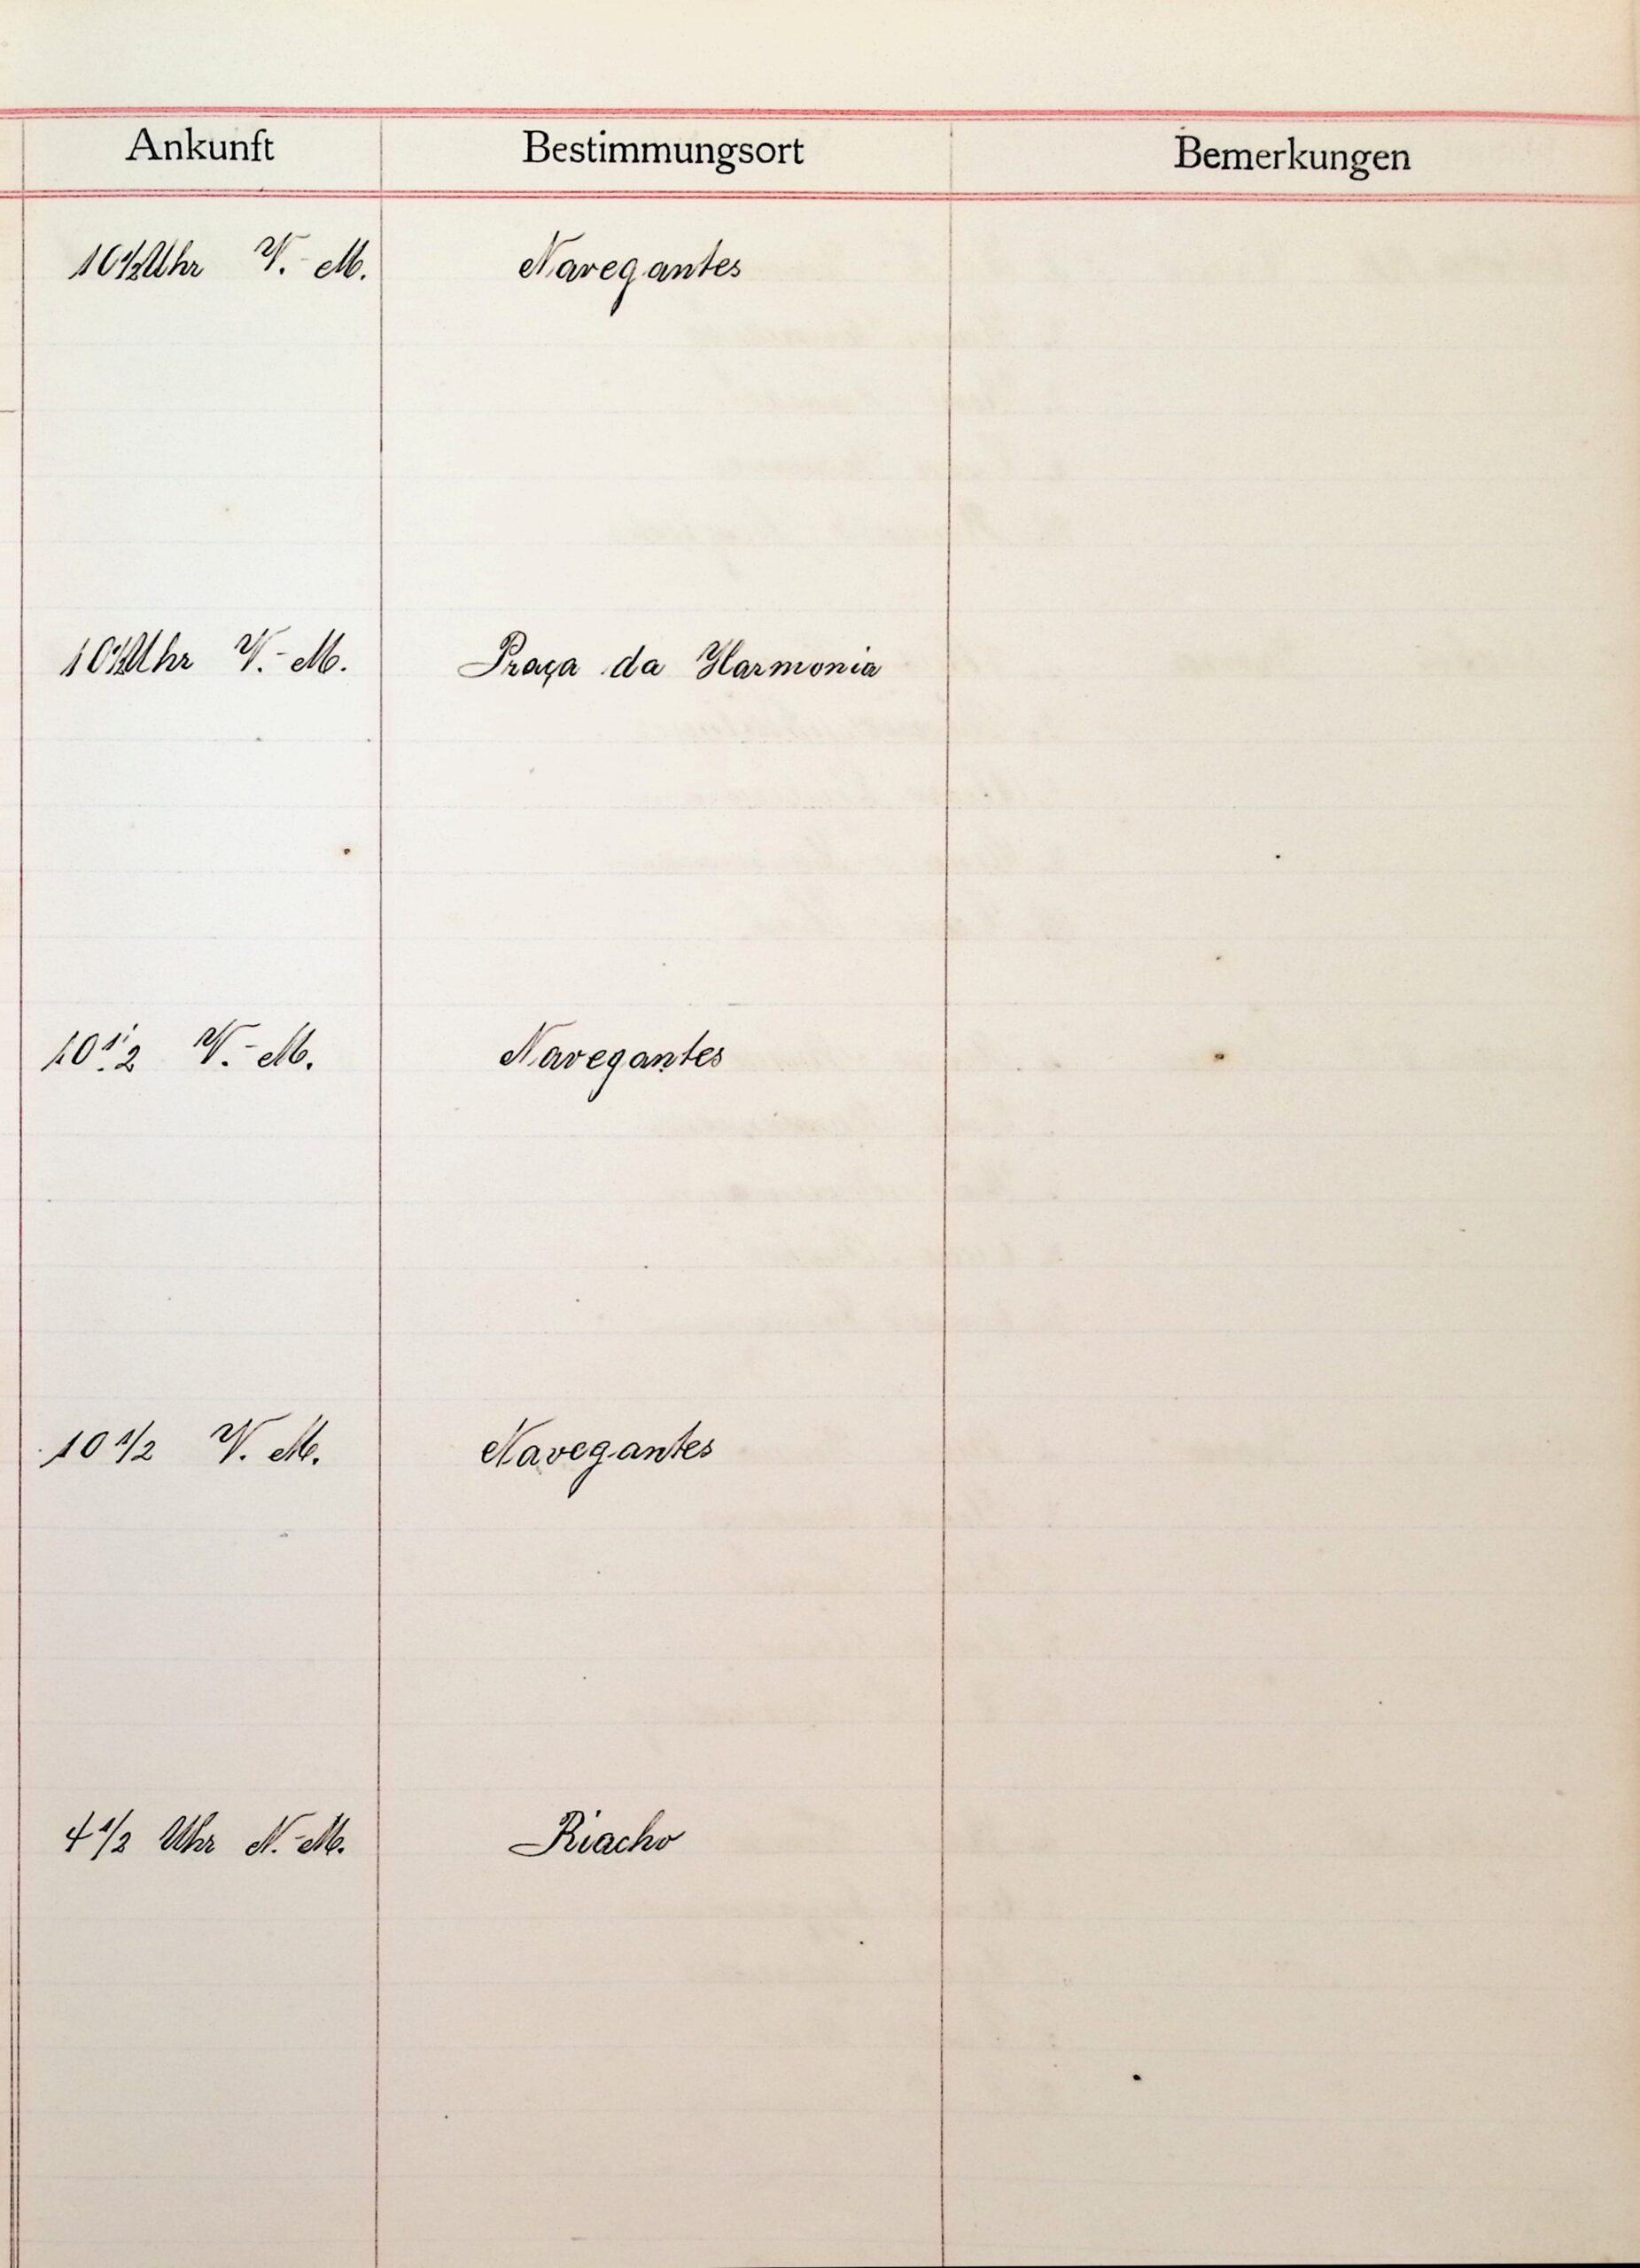 Ankunft Bestimmungsort Bemerkungen
10½ Uhr V.-M. Navegantes
10½ Uhr V.-M. Praça da Harmonia
10 1/2 V.-M. Navegantes
10 1/2 V. M. Navegantes
4 1/2 Uhr N.-M. Riacho